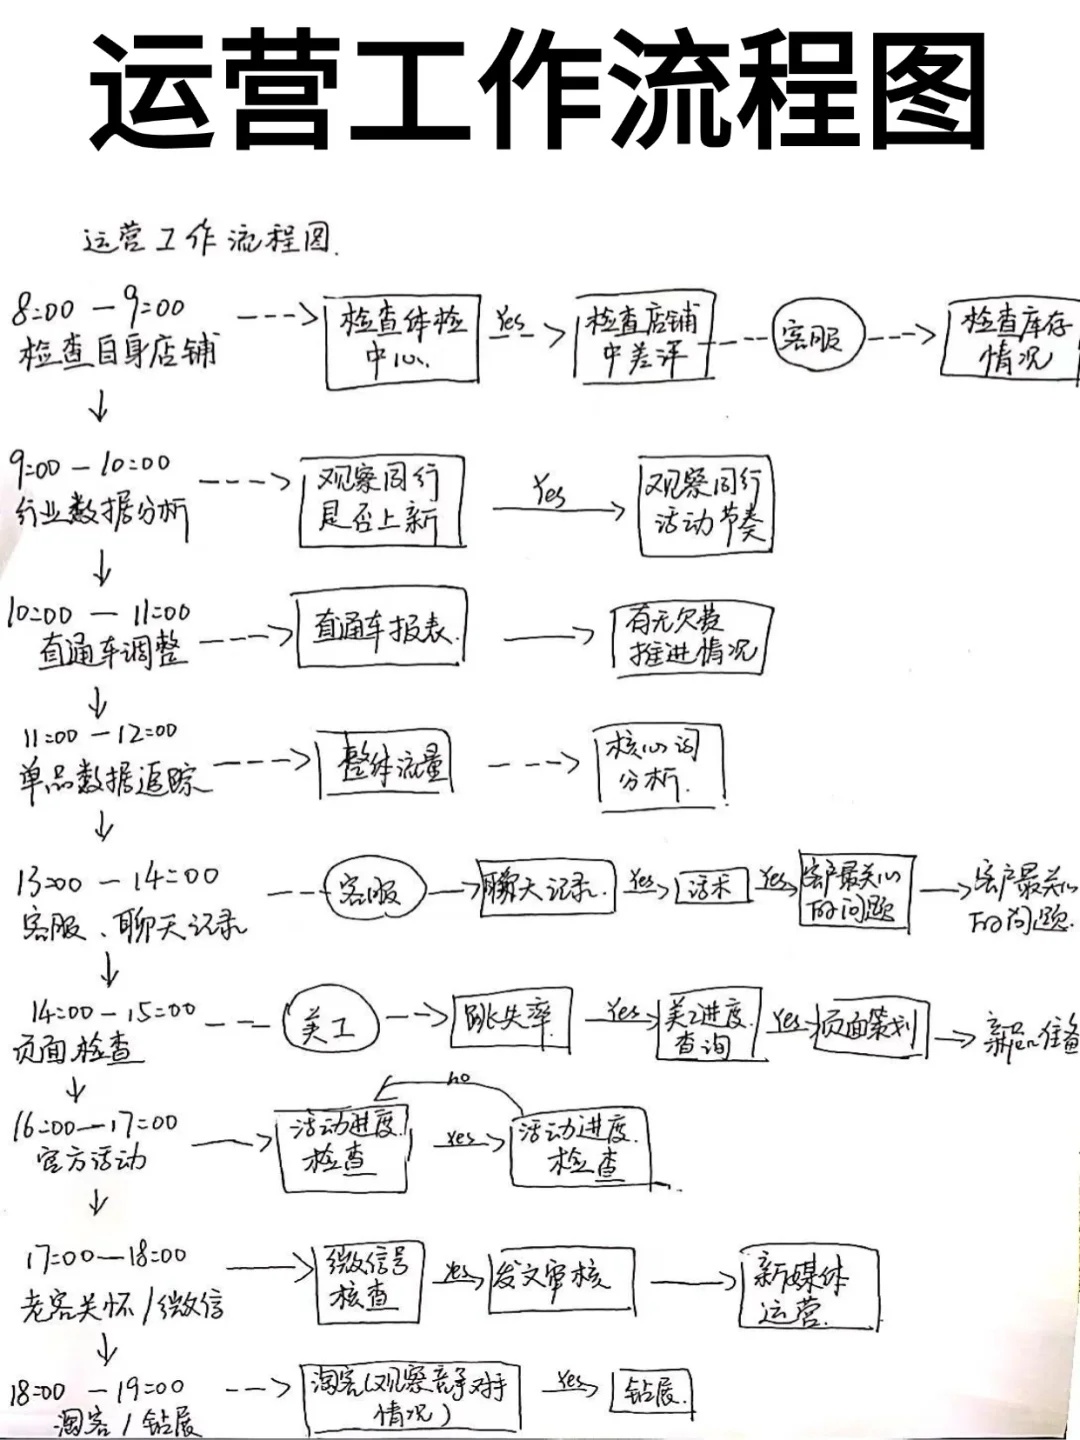 运营工作流程图
运营工作流程图.
8:00 — 9:00
检查自身店铺
检查体检
中心.
Yes
检查店铺
中差评
客服
检查库存
情况
9:00 — 10:00
行业数据分析
观察同行
是否上新
Yes
观察同行
活动节奏
10:00 — 11:00
直通车调整
直通车报表.
有无欠费
推进情况
11:00 — 12:00
单品数据追踪
整体流量
核心词
分析.
13:00 — 14:00
客服、聊天记录
客服
聊天记录.
Yes
话术
Yes
客户最关心
的问题
客户最关心
的问题.
14:00 — 15:00
页面检查
美工
跳失率.
Yes
美工进度
查询
Yes
页面策划
新品准备
16:00 — 17:00
官方活动
活动进度
检查
no
yes
活动进度.
检查
17:00 — 18:00
老客关怀/微信
微信号
核查
yes
发文审核
新媒体
运营.
18:00 — 19:00
淘客/钻展
淘客(观察竞争对手
情况)
Yes
钻展.